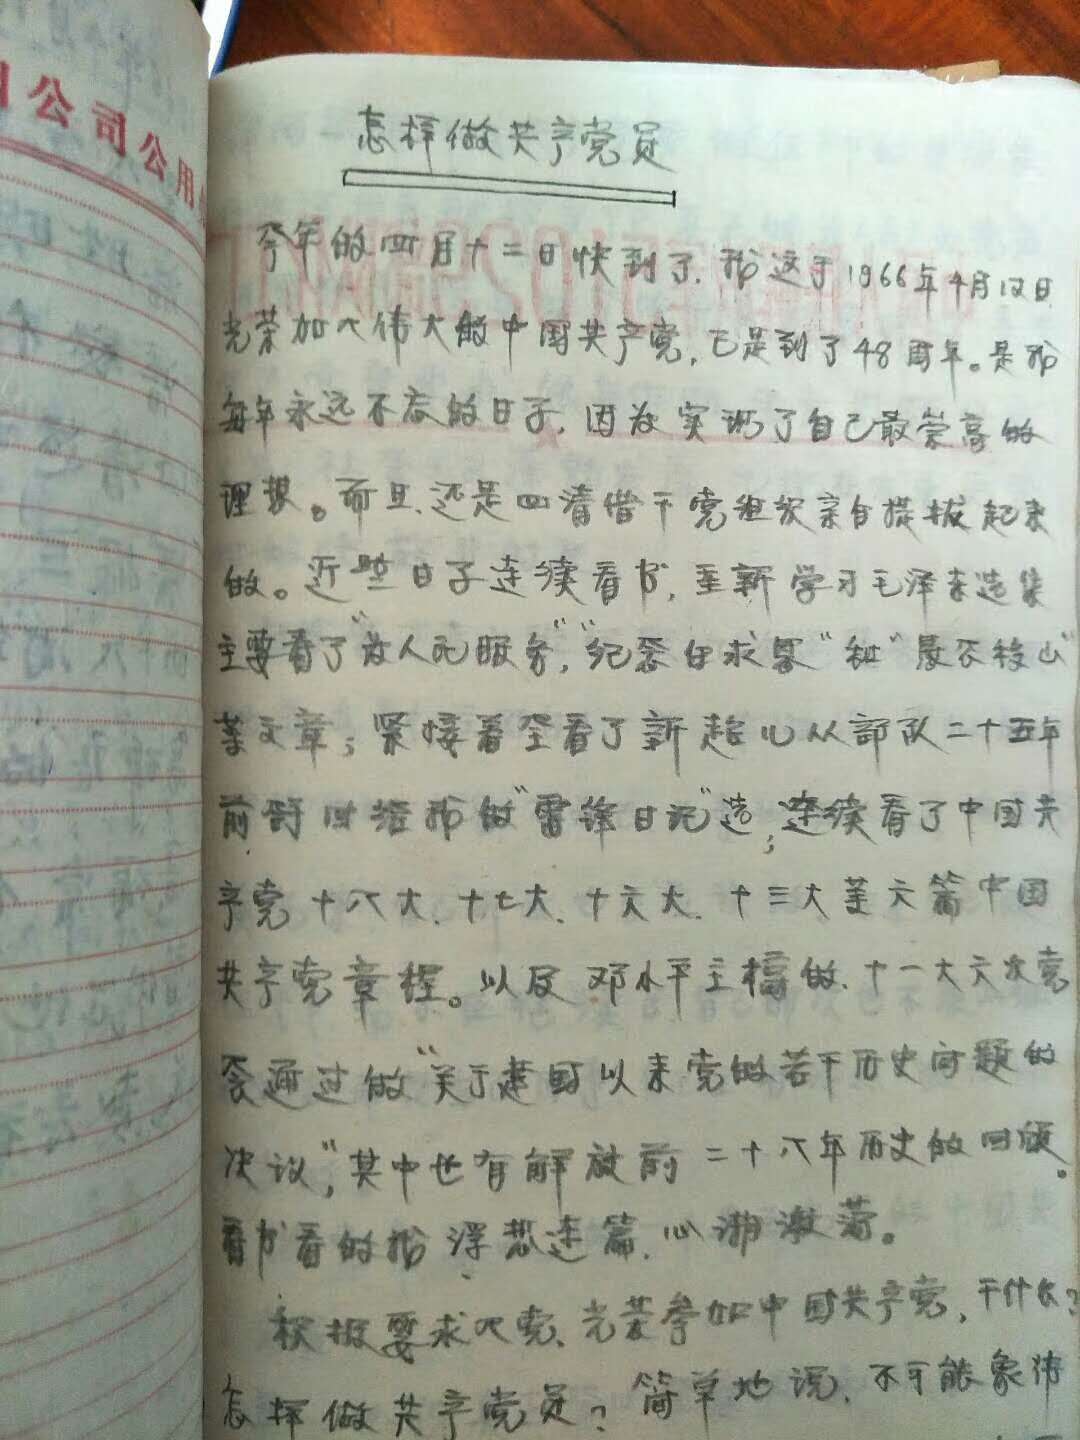 公司公用
怎样做共产党员
今年的四月十二日快到了,我这于1966年4月12日
光荣加入伟大的中国共产党,已是到了48周年。是我
每年永远不忘的日子,因为实现了自己最崇高的
理想。而且还是四清借干党组织亲自提拔起来
做。近些日子连续看书,重新学习毛泽东选集
主要看了"为人民服务","纪念白求恩"和"愚公移山"
等文章;紧接着全看了新 从部队二十五年
前 回给我的"雷锋日记"选;连续看了中国共
产党十八大、十七大、十六大、十三大等六篇中国
共产党章程。以及邓小平主 做、十一大六次党
会通过做"关于建国以来党做若干历史问题的
决议",其中也有解放前二十八年历史的回顾。
看书看的我浮想连篇、心潮激荡。
积极要求入党、光荣参加中国共产党,干什么?
怎样做共产党员?简单地说,不可能象